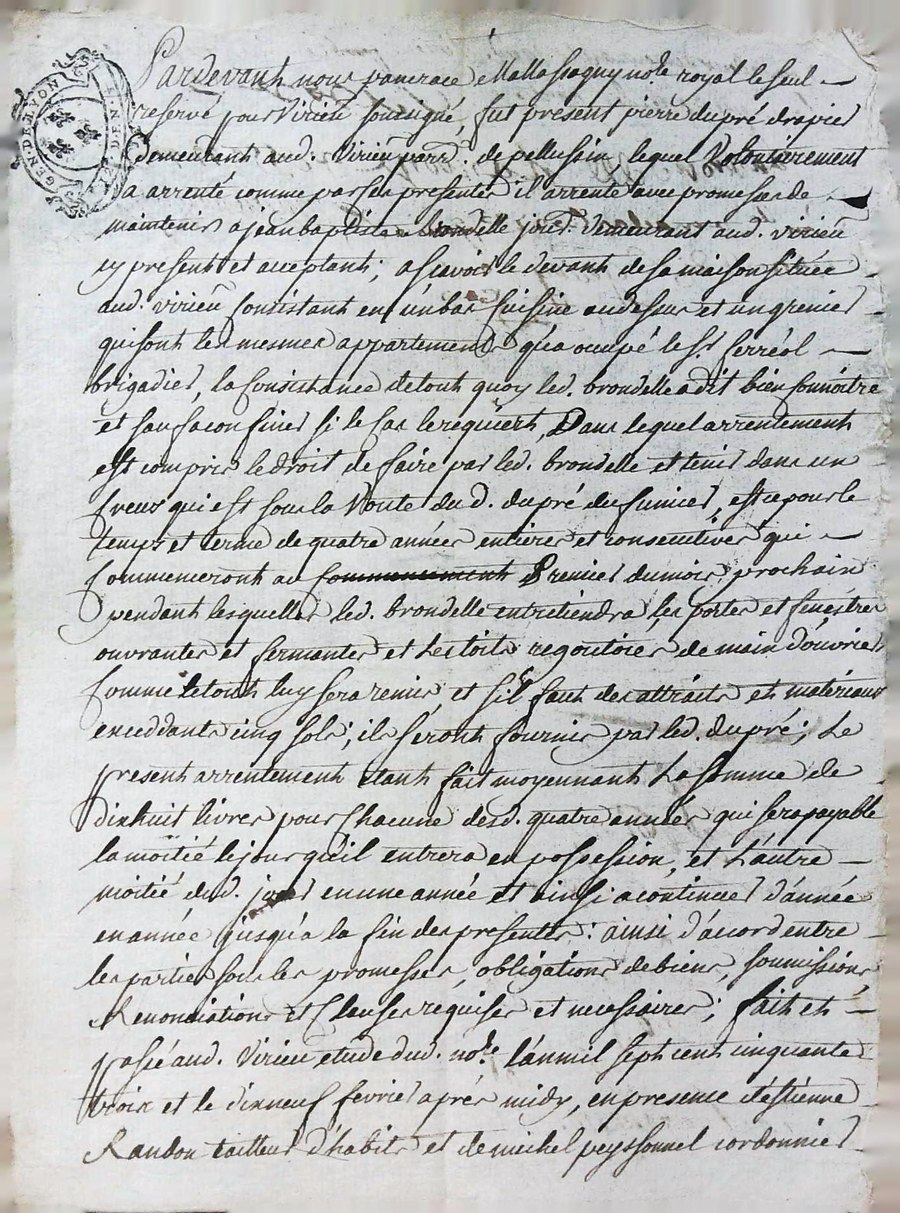 GEN DE LYON
Pardevant nous pancrace Mallassagny note royal le seul
reservé pour Virieu soussigné, fut present pierre dupré drapier
demeurant aud. Virieu parr. de pellussin lequel Volontairement
a arrenté comme par ses presentes il arrente avec promesse de
maintenir a jean baptiste brondelle jour. demeurant aud. virieu
cy present et acceptant; a scavoir le devant de sa maison située
aud. virieu Consistant en un bas Cuisine au dessus et un grenier
qui sont les mesmes appartements qu'a occupé le Sr. ferréol
brigadier, la Consistance de tout quoy led. brondelle a dit bien Connoitre
et sans a confiner si le Cas le requiert, Dans lequel arrentement
est compris le droit de faire par led. brondelle et tenir dans un
Creux qui est sous la Voute du d. dupré du fumier, est ce pour le
temps et terme de quatre années entieres et consecutives qui
Commenceront au Commencement Premier du mois prochain
pendant lesquelles led. brondelle entretiendra les portes et fenestres
ouvrantes et fermantes et Les toits regoutoiés de main d'ouvrier
Comme le tout luy sera remis, et S'il faut des attraits et matériaux
exceddants cinq sols; ils Seront fournis par led. dupré; Le
present arrentement etant fait moyennant La somme de
dixhuit livres pour Chacune desd. quatre années qui sera payable
la moitié le jour qu'il entrera en possession, et L'autre
moitié dud. jour en une année et ainsi a continuer d'année
en année jusqu'a la fin des presentes: ainsi d'accord entre
les parties sous les promesses, obligations de biens, soumissions,
Renonciations et Clauses requises et necessaires; fait et
passé aud. Virieu etude dud. note l'an mil sept cent cinquante
trois et le dixneuf fevrier aprés midy, en presence d'estienne
Randon tailleur d'habits et de michel peyssonnel cordonnier